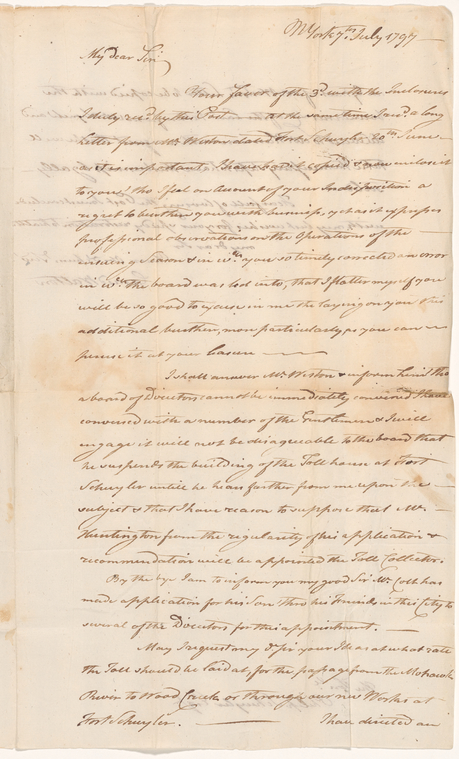 NYork 7th. July 1797
My dear Sir
Your favor of the 3d. with the Inclosures
I duly recd. by this Post at the same time I recd. a long
Letter from Mr. Weston dated Fort Schuyler 20th June
as it is important I have had it copied & now inclose it
to you, tho I feel on account of your Indisposition a
regret to burthen you with business, yet as it expresses
professional observations on the operations of the
ensuing Season & in wch. you so timely corrected an error
in wch. the board was led into, that I flatter myself you
will be so good to excuse in me the laying on you this
additional burthen, more particularly, as you can
peruse it at your Leasure
I shall answer Mr. Weston & inform him that
a board of Directors cannot be immediately convened I have
conversed with a number of the Gentlemen & I will
engage it will not be disagreeable to the board that
he suspends the building of the Toll house at Fort
Schuyler untill he hears farther from me upon the
subject & that I have reason to suppose that Mr.
Huntington from the regularity of his application &
recommendation will be appointed the Toll Collector.
By the bye I am to inform you my good Sir Mr. Colt has
made application for his Son thro his Friends in this City to
several of the Directors for this appointment.
May I request my Dr. Sir your Ideas at what rate
the Toll should be laid at, for the passage from the Mohawk
River to Wood Creek or through our new Works at
Fort Schuyler. I have directed an